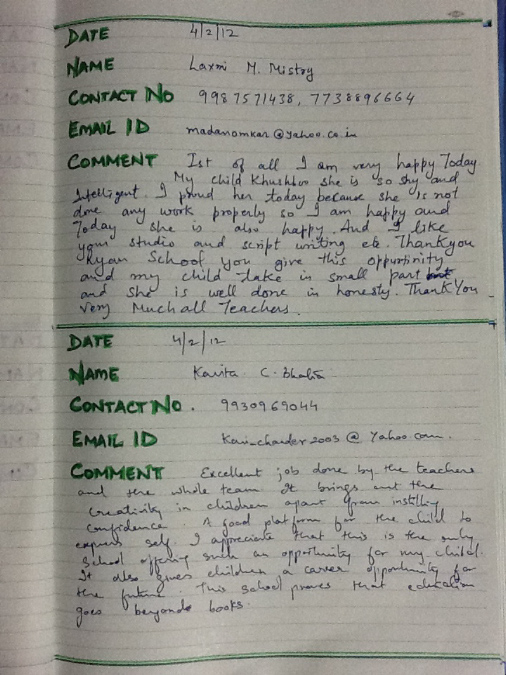 DATE 4/2/12
NAME Laxmi M. Mistry
CONTACT NO 9987571438, 7738896664
EMAIL ID madanomkar@yahoo.co.in
COMMENT Ist of all I am very happy Today
My child Khushboo she is so shy and
Intelligent. I proud her today because she is not
done any work properly so I am happy and
Today she is also happy. And I like
your studio and script writing etc. Thankyou
Ryan School you give this oppurtinity
and my child take in small part
and she is well done in honesty. Thank You
very Much all Teachers.
DATE 4/2/12
NAME Kavita C. Bhatia
CONTACT NO. 9930969044
EMAIL ID @ Yahoo com.
COMMENT Excellent job done by the teachers
and the whole team. It brings out the
creativity in children apart from instilling
confidence. A good platform for the child to
express self. I appreciate that this is the only
school offering such an opportunity for my child.
It also gives children a career opportunity for
the future. This school proves that education
goes beyonds books.